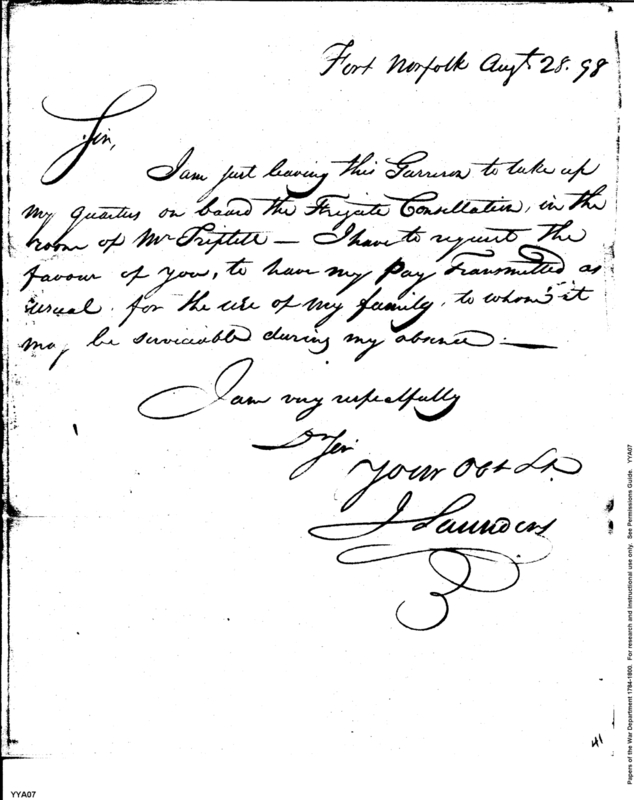 Fort Norfolk Augt 28. 98
Sir,
I am just leaving this Garrison to take up
my quarters on board the Frigate Consellation, in the
room of Mr Triplett — I have to request the
favour of you, to have my Pay Transmitted as
usual. for the use of my family, to whom it
may be serviceable during my absence. —
I am very respectfully
Dr Sir
Your Obt St.
J Saunders
41
Papers of the War Department 1784-1800. For research and instructional use only. See Permissions Guide. YYA07
YYA07